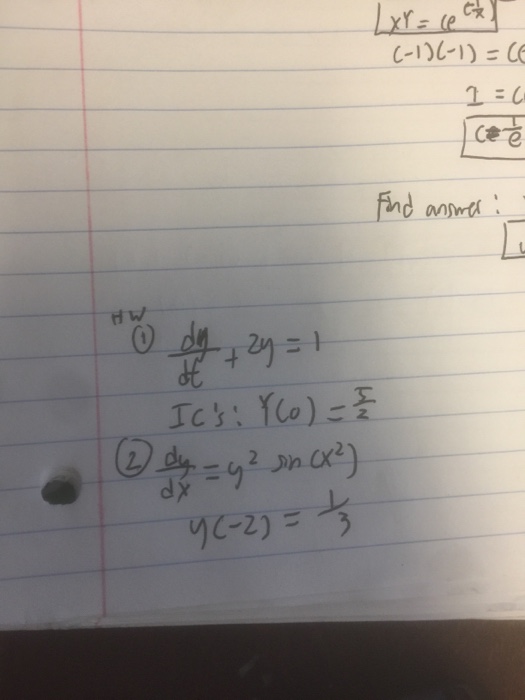 xY = Ce^(-1/x)
(-1)(-1) = Ce
1 = C
C = 1/e
Find answer:
HW
① dy/dt + 2y = 1
IC's: Y(0) = 5/2
② dy/dx = y² sin(x²)
y(-2) = 1/3